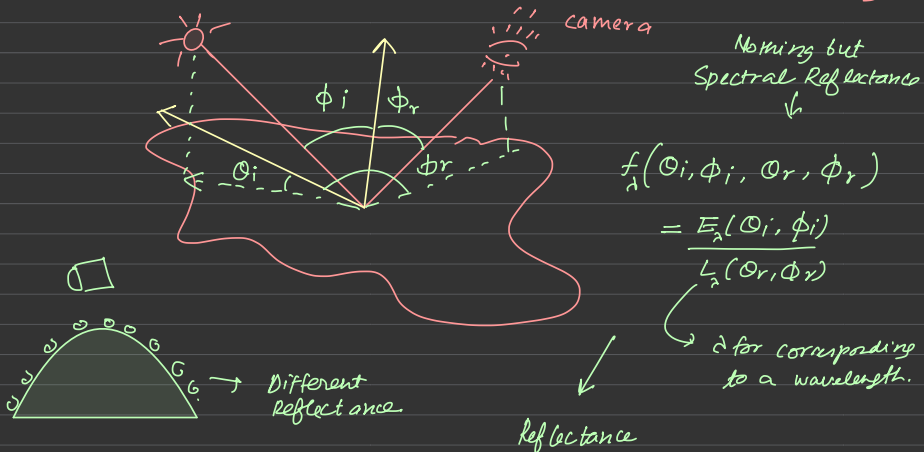 camera
Nothing but
Spectral Reflectance
ϕi ϕr
θi ϕr
fλ(θi, ϕi, θr, ϕr)
= Eλ(θi, ϕi)
Lλ(θr, ϕr)
λ for corresponding
to a wavelength.
Different
Reflectance
Reflectance